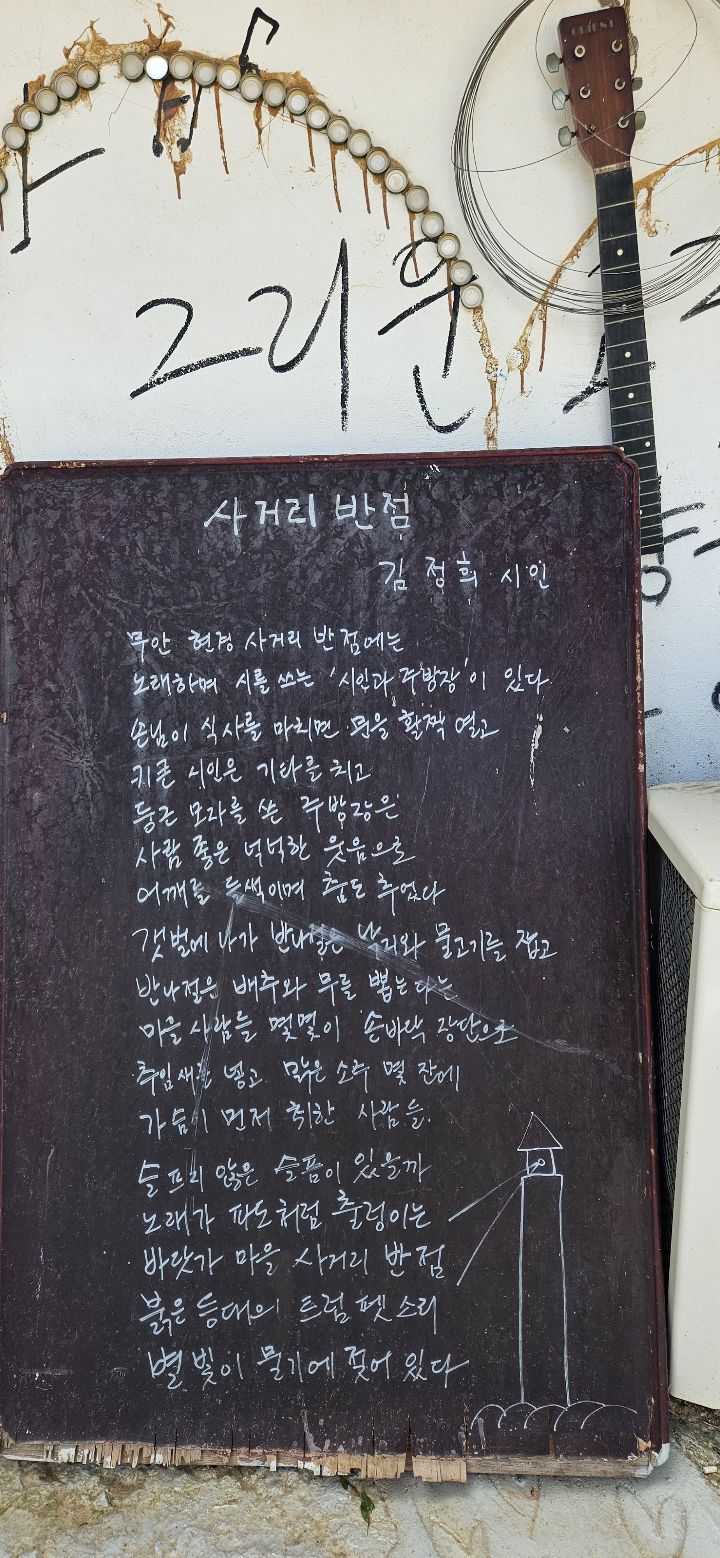 ORIENT
그리운
사거리 반점
김정희 시인
무안 현경 사거리 반점에는
노래하며 시를 쓰는 '시인과 주방장'이 있다
손님이 식사를 마치면 문을 활짝 열고
키큰 시인은 기타를 치고
둥근 모자를 쓴 주방장은
사람 좋은 넉넉한 웃음으로
어깨를 들썩이며 춤도 추었다
갯벌에 나가 반나절은 낙지와 물고기를 잡고
반나절은 배추와 무를 뽑는다는
마을 사람들 몇몇이 손바닥 장단으로
추임새를 넣고 맑은 소주 몇 잔에
가슴이 먼저 취한 사람들.
슬프지 않은 슬픔이 있을까
노래가 파도처럼 출렁이는
바닷가 마을 사거리 반점
붉은 등대의 트럼펫소리
별빛이 물기에 젖어 있다